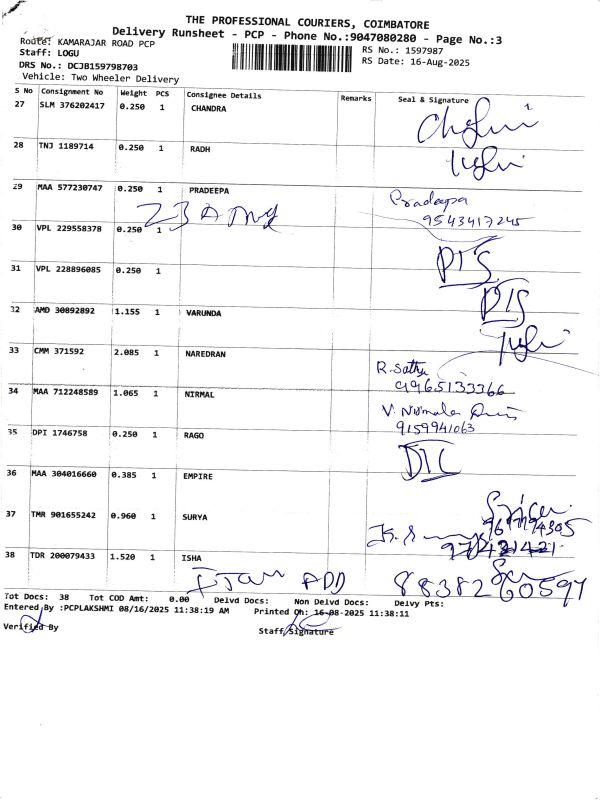 THE PROFESSIONAL COURIERS, COIMBATORE
Delivery Runsheet - PCP - Phone No.:9047080280 - Page No.:3
Route: KAMARAJAR ROAD PCP
RS No.: 1597987
Staff: LOGU
RS Date: 16-Aug-2025
DRS No.: DCJB159798703
Vehicle: Two Wheeler Delivery
S No Consignment No Weight PCS Consignee Details Remarks Seal & Signature
27 SLM 376202417 0.250 1 CHANDRA
28 TNJ 1189714 0.250 1 RADH
29 MAA 577230747 0.250 1 PRADEEPA Pradeepa
9543417245
30 VPL 229558378 0.250 1
31 VPL 228896085 0.250 1
32 AMD 30892892 1.155 1 VARUNDA
33 CMM 371592 2.085 1 NAREDRAN R. Sathy
9965133366
34 MAA 712248589 1.065 1 NIRMAL V. Nirmala
9159941063
35 DPI 1746758 0.250 1 RAGO
36 MAA 304016660 0.385 1 EMPIRE
37 TMR 901655242 0.960 1 SURYA
38 TDR 200079433 1.520 1 ISHA
ADD 8838260597
Tot Docs: 38 Tot COD Amt: 0.00 Delvd Docs: Non Delvd Docs: Delvy Pts:
Entered By :PCPLAKSHMI 08/16/2025 11:38:19 AM Printed On: 16-08-2025 11:38:11
Verified By Staff Signature